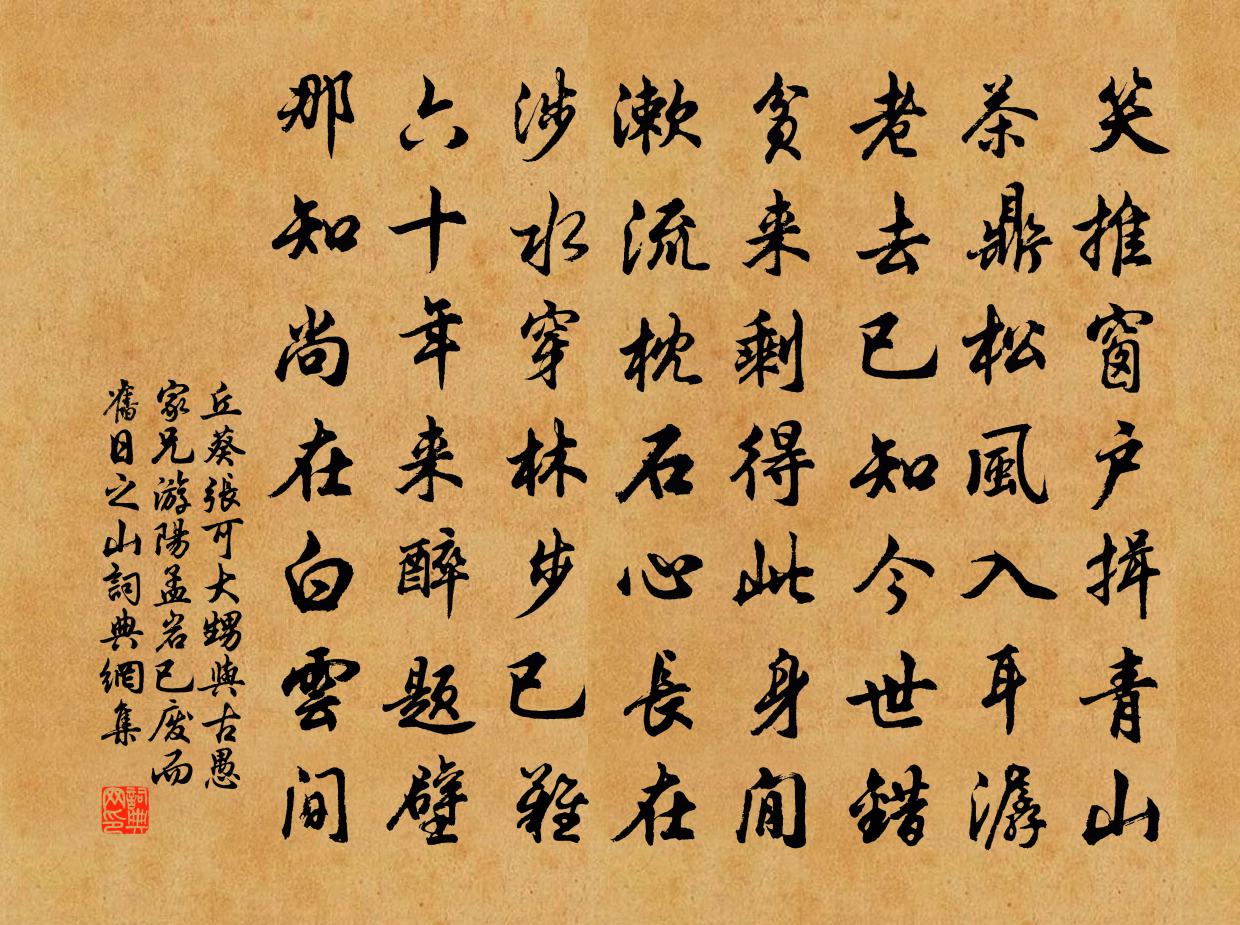 笑推窗户揖青山
茶鼎松風入耳潺
老去已知今世錯
貧来剩得此身閒
漱流枕石心長在
涉水穿林步已難
六十年来醉題壁
那知尚在白雲間
丘葵張可大甥與古愚
家兄游陽孟岩已废而
舊日之山詞典網集
詞典網印